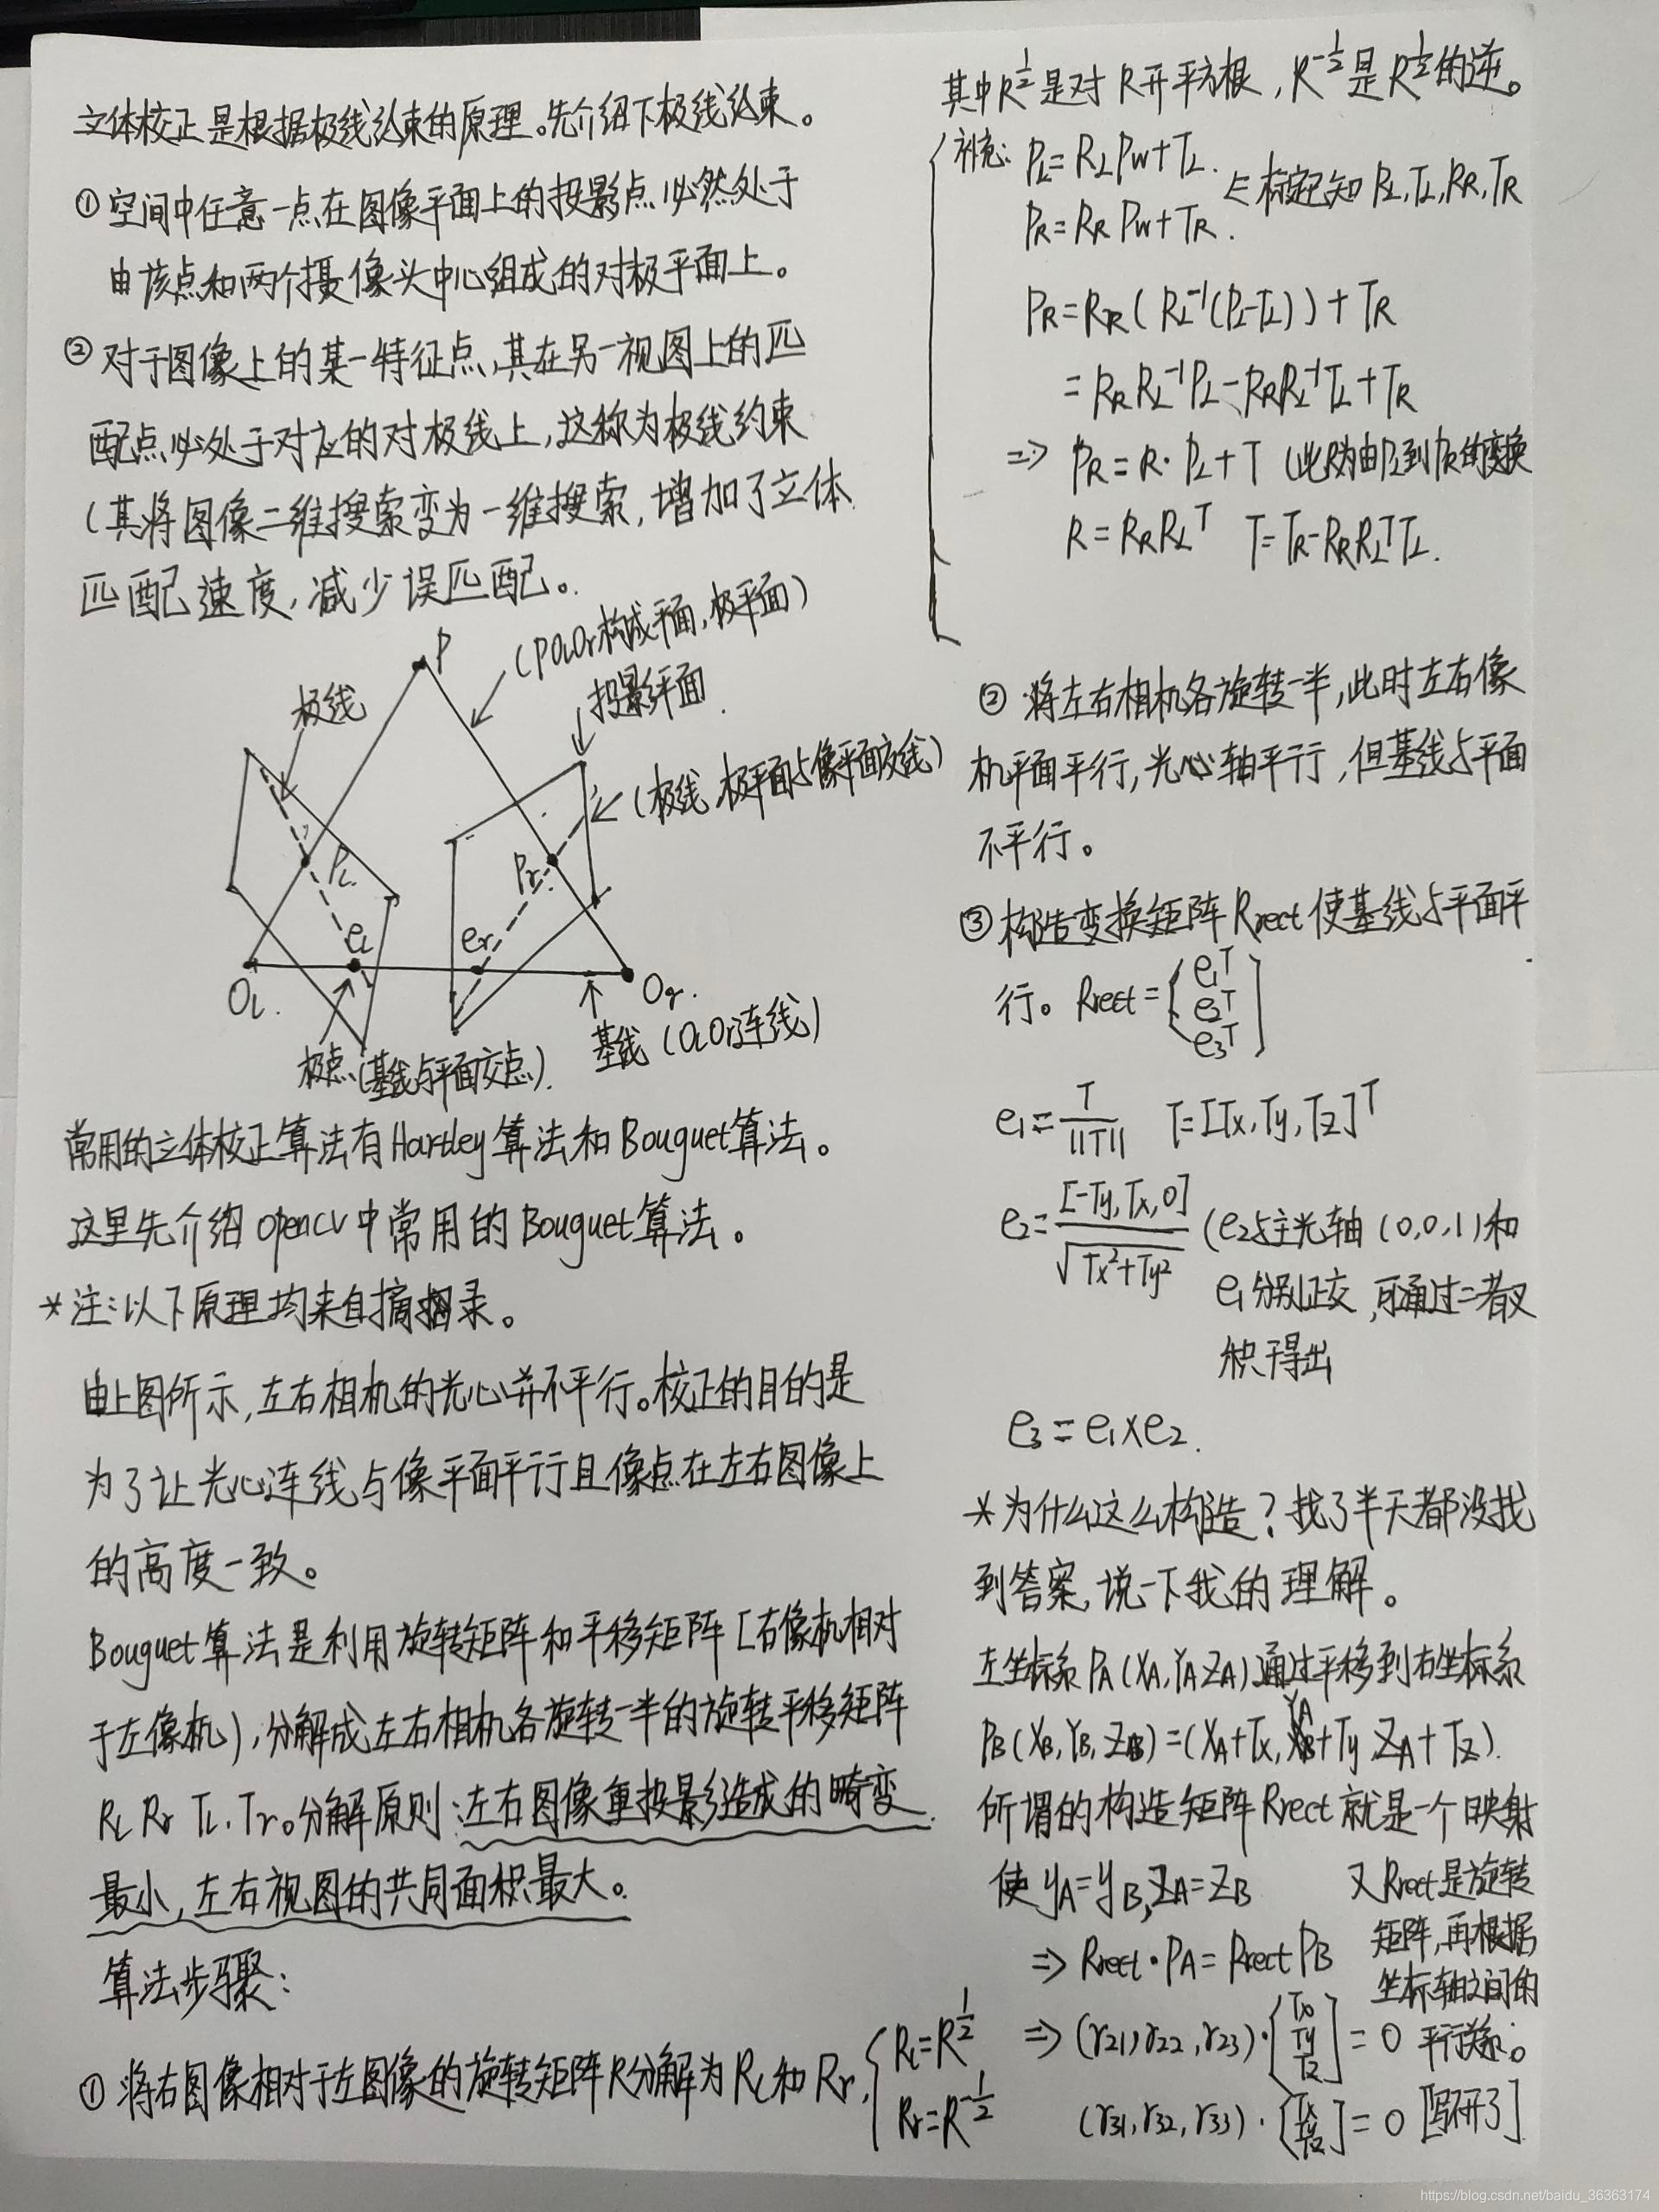 立体校正是根据极线约束的原理。先介绍下极线约束。
① 空间中任意一点在图像平面上的投影点必然处于
由该点和两个摄像头中心组成的对极平面上。
② 对于图像上的某一特征点,其在另一视图上的匹
配点必处于对应的对极线上,这称为极线约束
(其将图像二维搜索变为一维搜索,增加了立体
匹配速度,减少误匹配。
P
(POlOr构成平面,极平面)
极线
投影平面
(极线,极平面与像平面交线)
Pl
Pr
el
er
Ol
Or
极点(基线与平面交点)
基线 (OlOr连线)
常用的立体校正算法有Hartley算法和Bouguet算法。
这里先介绍opencv中常用的Bouguet算法。
* 注:以下原理均来自摘录。
由上图所示,左右相机的光心并不平行。校正的目的是
为了让光心连线与像平面平行且像点在左右图像上
的高度一致。
Bouguet算法是利用旋转矩阵和平移矩阵[右像机相对
于左像机),分解成左右相机各旋转一半的旋转平移矩阵
Rl Rr Tl.Tr。分解原则:左右图像重投影造成的畸变
最小,左右视图的共同面积最大。
算法步骤:
① 将右图像相对于左图像的旋转矩阵R分解为Rl和Rr, { Rl=R^{1/2}
Rr=R^{-1/2}
其中R^{1/2}是对R开平方根,R^{-1/2}是R^{1/2}的逆。
补充: PL=RLPw+TL.
PR=RRPw+TR. ∈标定已知 RL,TL,RR,TR
PR=RR(RL^{-1}(PL-TL))+TR
=RRRL^{-1}PL-RRRL^{-1}TL+TR
⇒ PR=R·PL+T (此即为由PL到PR的变换
R=RRRL^T T=TR-RRRL^TTL.
② 将左右相机各旋转一半,此时左右像
机平面平行,光心轴平行,但基线与平面
不平行。
③ 构造变换矩阵Rrect使基线与平面平
行。Rrect=[e1^T e2^T e3^T]
e1=T/||T|| T=[Tx,Ty,Tz]^T
e2=[-Ty,Tx,0]/√(Tx²+Ty²) (e2与主光轴(0,0,1)和
e1分别正交,可通过二者叉
积得出
e3=e1×e2.
* 为什么这么构造?找了半天都没找
到答案,说一下我的理解。
左坐标系PA(XA,YA,ZA)通过平移到右坐标系
PB(XB,YB,ZB)=(XA+Tx,YA+Ty,ZA+Tz).
所谓的构造矩阵Rrect就是一个映射
使yA=yB,ZA=ZB
又Rrect是旋转
矩阵,再根据
坐标轴之间的
平行关系。
⇒ Rrect·PA=RrectPB
⇒ (r21,r22,r23)·[Tx Ty Tz]=0
(r31,r32,r33)·[Tx Ty Tz]=0 [写不开了]
https://blog.csdn.net/baidu_36363174